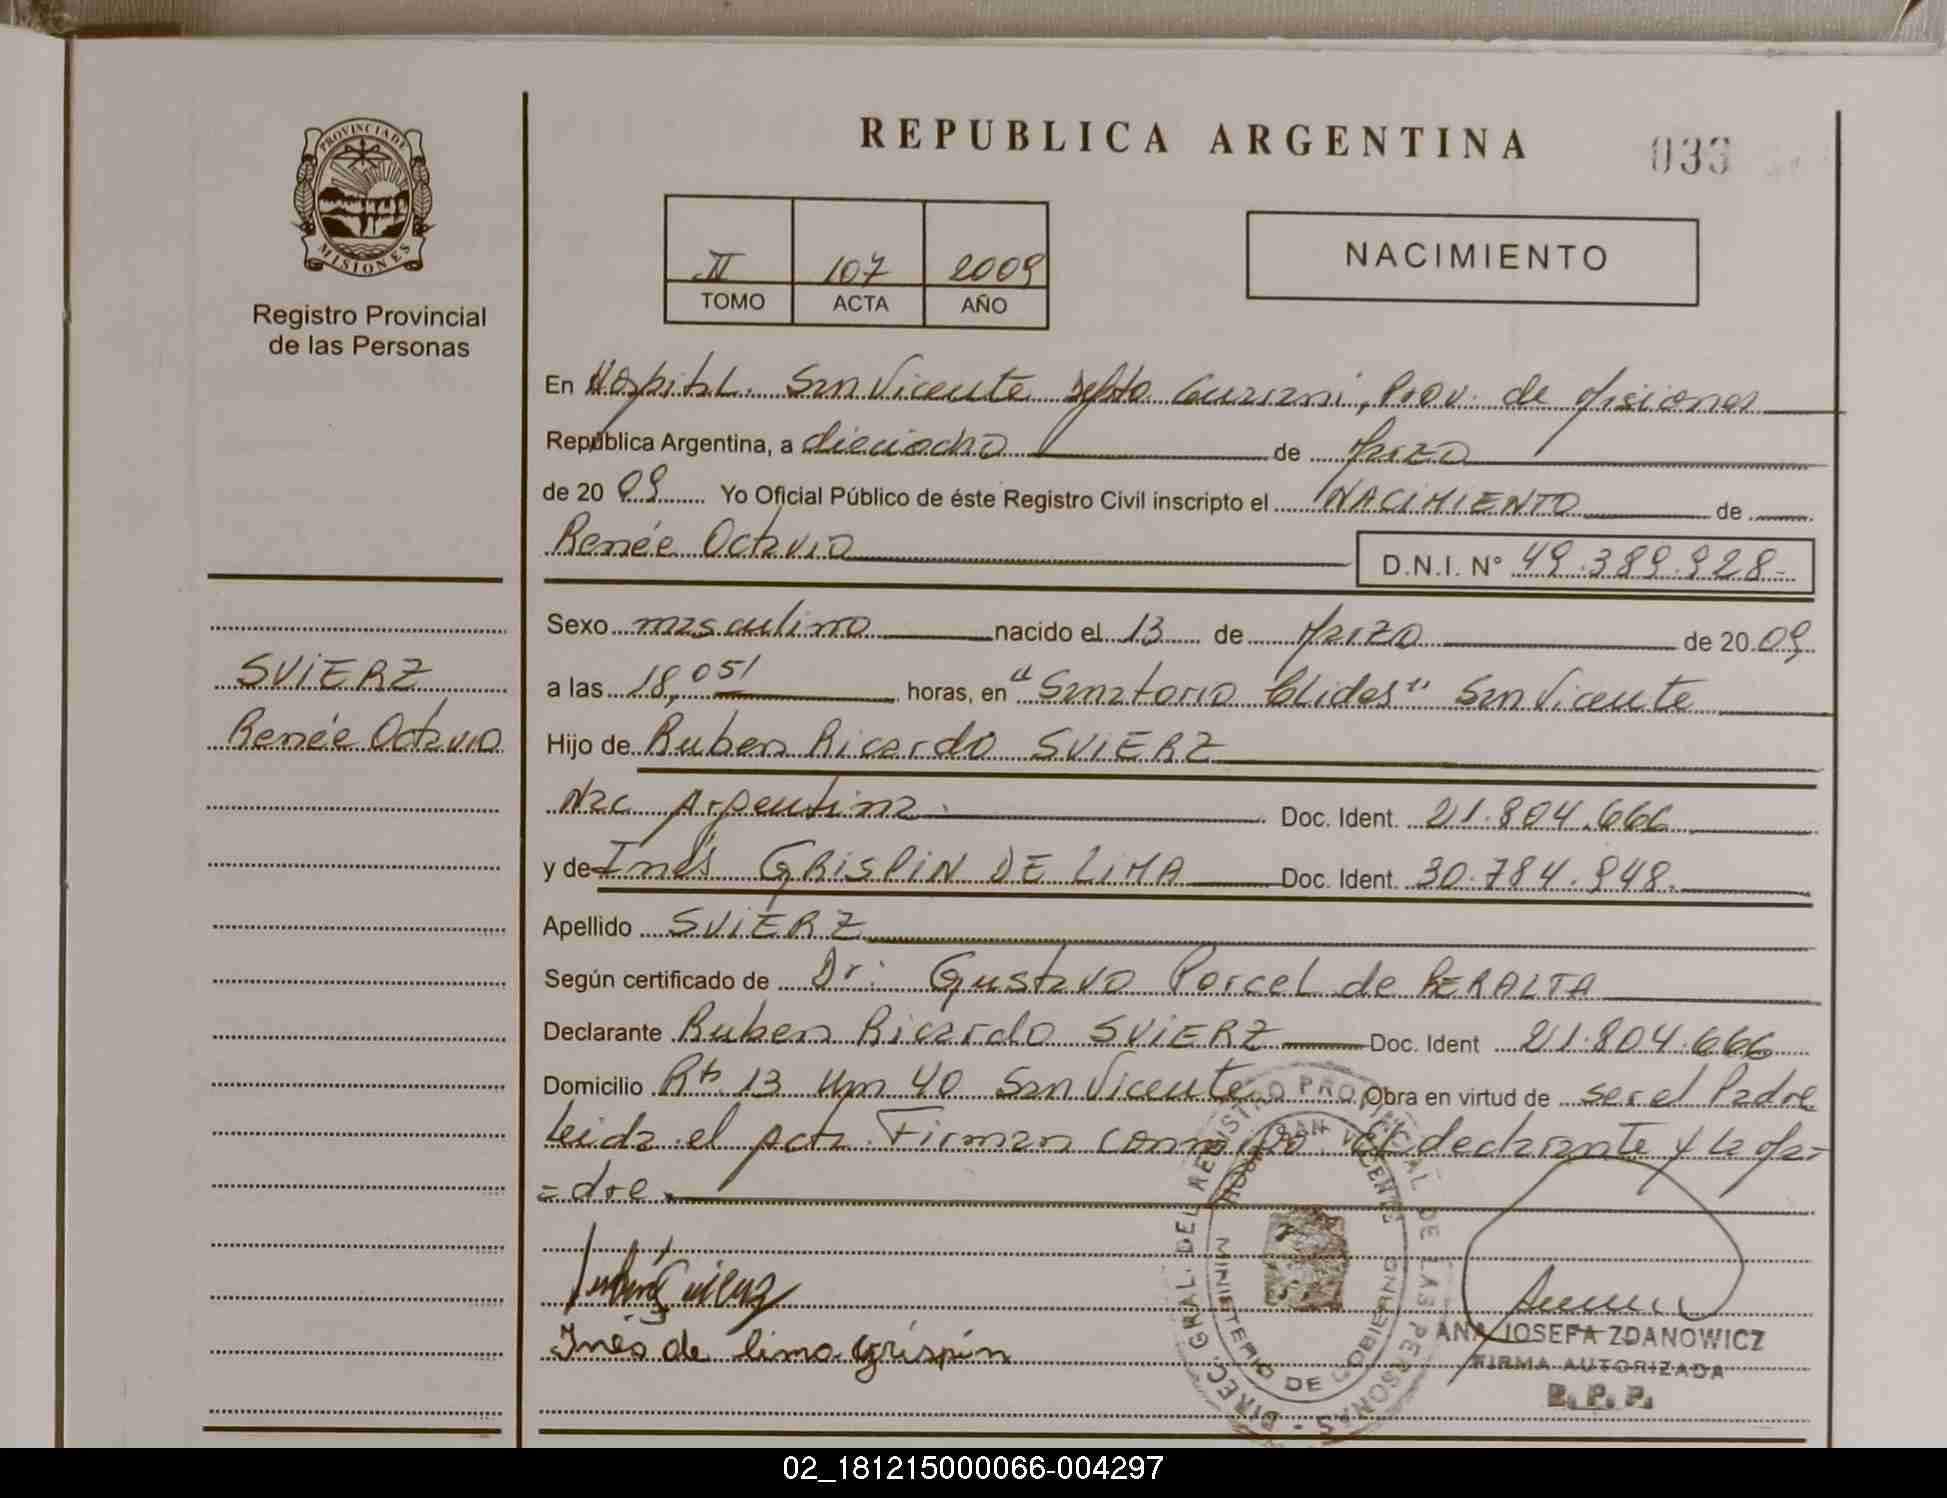 REPUBLICA ARGENTINA
033
PROVINCIA DE
MISIONES
Registro Provincial
de las Personas
II 107 2009
TOMO ACTA AÑO
NACIMIENTO
En Hospital San Vicente Dpto Guarani, Prov. de Misiones
República Argentina, a dieciocho de Marzo
de 20 09 Yo Oficial Público de éste Registro Civil inscripto el NACIMIENTO de
Renée Octavio
D.N.I. N° 49.389.928-
SVIERZ
Renée Octavio
Sexo masculino nacido el 13 de Marzo de 20 09
a las 18,05' horas, en "Sanatorio Elides" San Vicente
Hijo de Ruben Ricardo SVIERZ
Nac Argentina. Doc. Ident. 21.804.666
y de Inés GRISPIN DE LIMA Doc. Ident. 30.784.948.
Apellido SVIERZ
Según certificado de Dr: Gustavo Porcel de PERALTA
Declarante Ruben Ricardo SVIERZ Doc. Ident 21.804.666
Domicilio Rta 13 Km 40 San Vicente Obra en virtud de ser el Padre
Leida el acta Firman conmigo el declarante y la Ma=
=dre.
Inés de lima Grispín
DIREC. GRAL. DEL REGISTRO PROVINCIAL DE LAS PERSONAS -
SAN VICENTE
MINISTERIO DE GOBIERNO
ANA JOSEFA ZDANOWICZ
FIRMA AUTORIZADA
R. P. P.
02_181215000066-004297